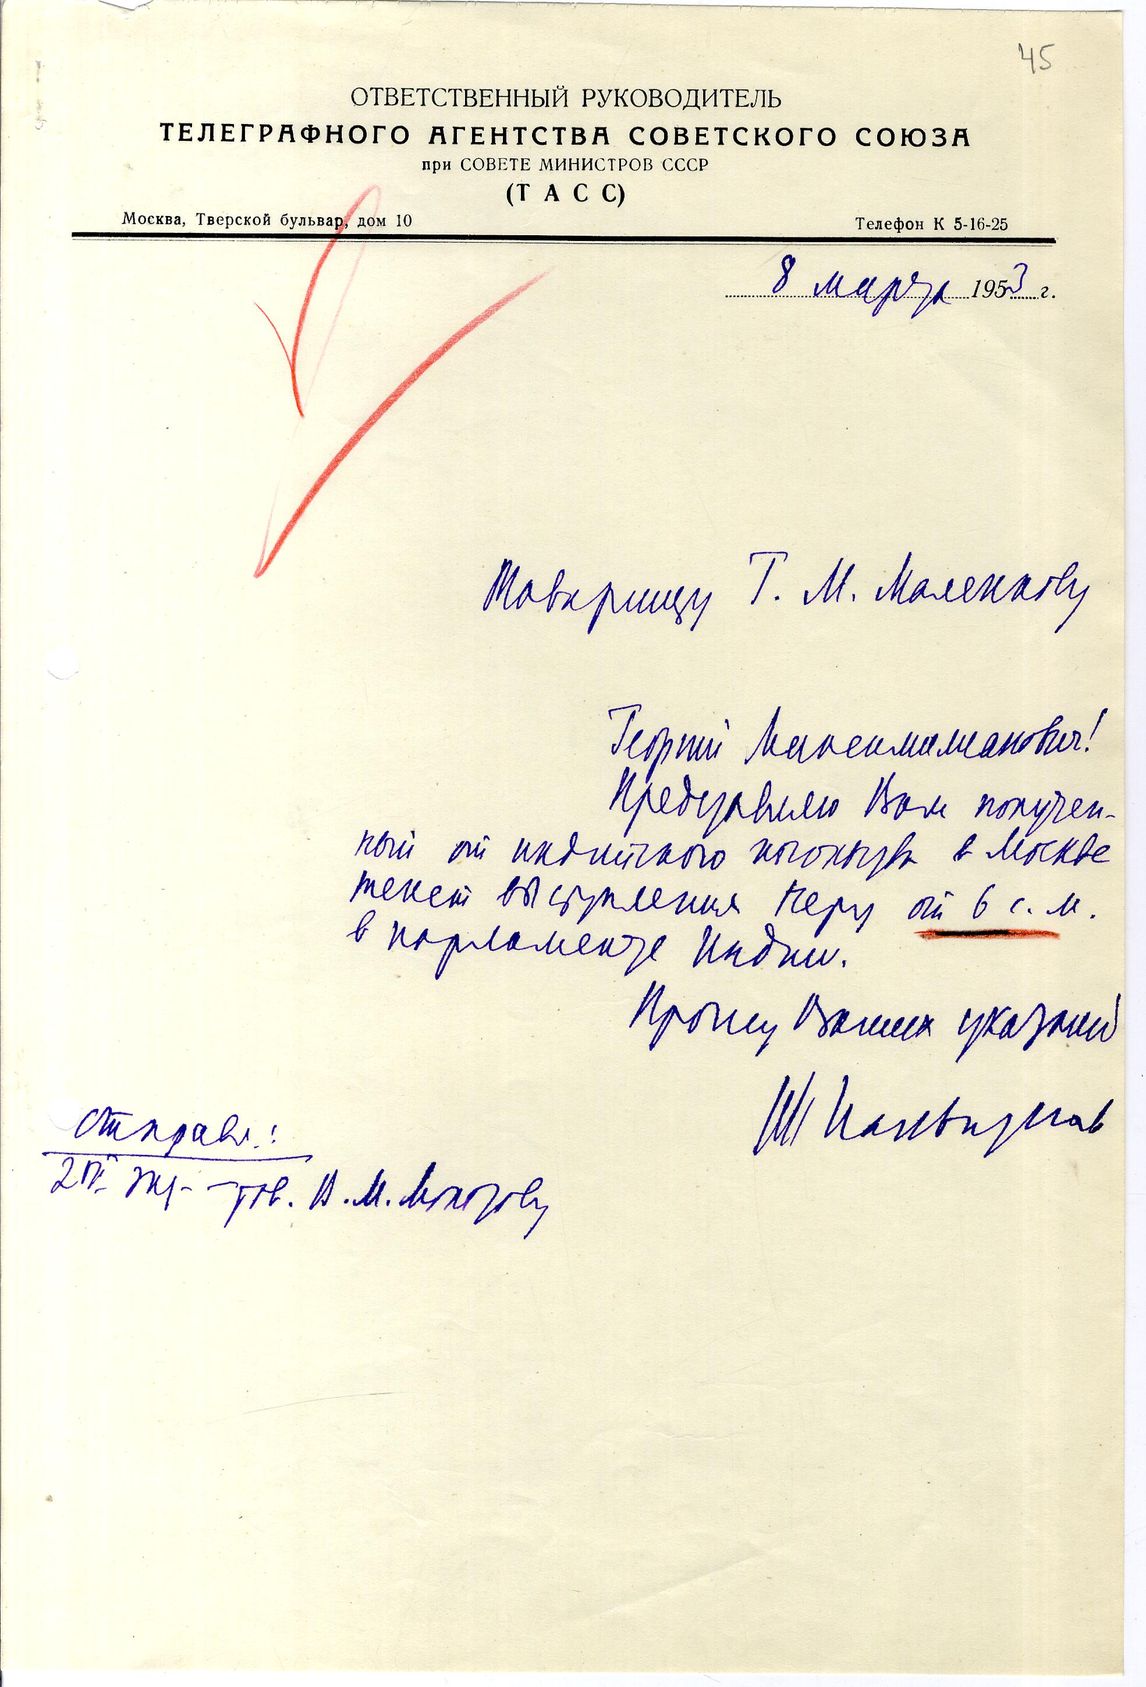 45
ОТВЕТСТВЕННЫЙ РУКОВОДИТЕЛЬ
ТЕЛЕГРАФНОГО АГЕНТСТВА СОВЕТСКОГО СОЮЗА
при СОВЕТЕ МИНИСТРОВ СССР
(ТАСС)
Москва, Тверской бульвар, дом 10 Телефон К 5-16-25
8 марта 1953 г.
Товарищу Г. М. Маленкову
Георгий Максимилианович!
Представляю Вам получен-
ный от индийского посольства в Москве
текст выступления Неру от 6 с. м.
в парламенте Индии.
Прошу Ваших указаний
Отправл.:
2й экз. – тов. В. М. Молотову